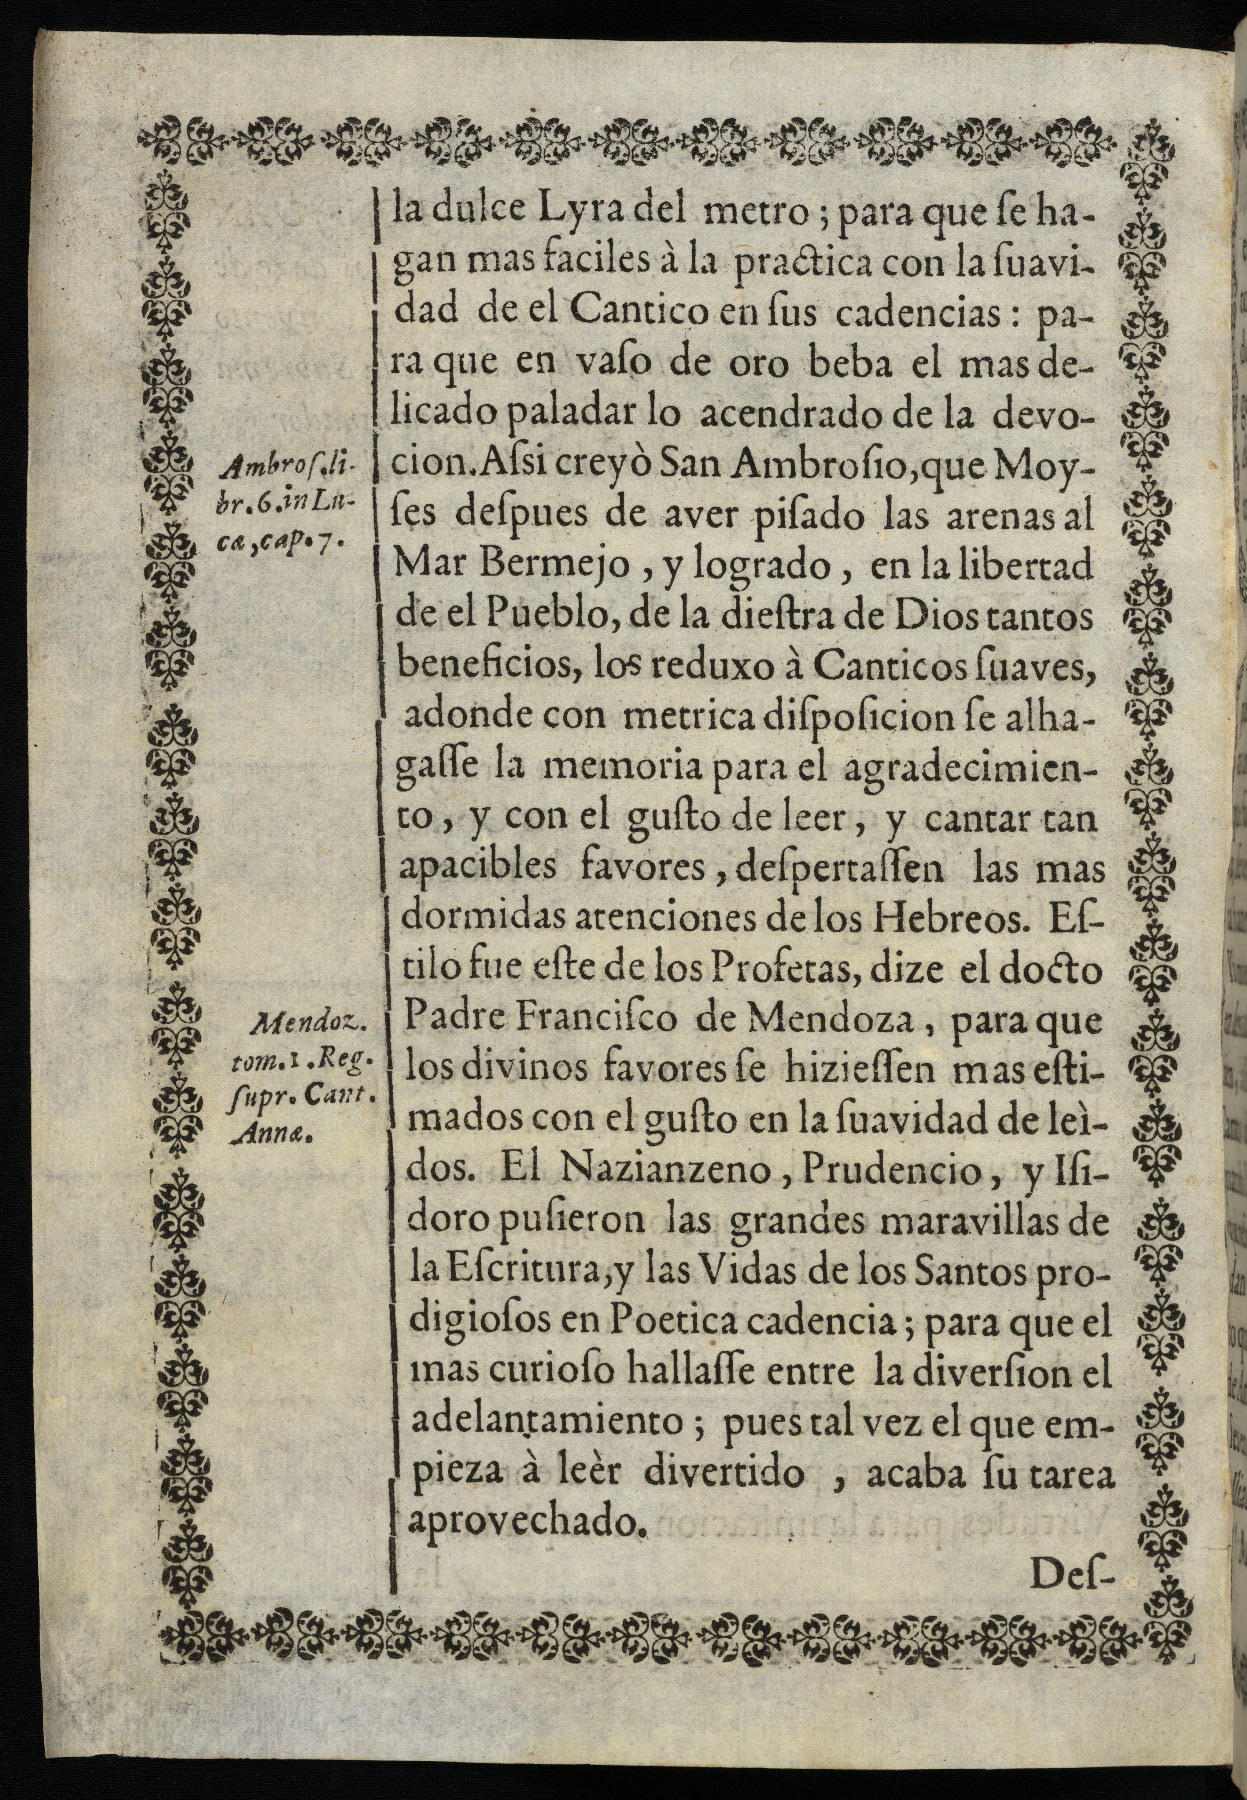 la dulce Lyra del metro ; para que ſe ha-
gan mas faciles à la practica con la ſuavi-
dad de el Cantico en ſus cadencias : pa-
ra que en vaſo de oro beba el mas de-
licado paladar lo acendrado de la devo-
Ambroſ.li-
br.6.in Lu-
cæ,cap.7.
cion.Aſsi creyò San Ambroſio,que Moy-
ſes deſpues de aver piſado las arenas al
Mar Bermejo , y logrado , en la libertad
de el Pueblo, de la dieſtra de Dios tantos
beneficios, los reduxo à Canticos ſuaves,
adonde con metrica diſpoſicion ſe alha-
gaſſe la memoria para el agradecimien-
to , y con el guſto de leer , y cantar tan
apacibles favores , deſpertaſſen las mas
dormidas atenciones de los Hebreos. Eſ-
tilo fue eſte de los Profetas, dize el docto
Mendoz.
tom.1.Reg.
ſupr. Cant.
Annæ.
Padre Franciſco de Mendoza , para que
los divinos favores ſe hizieſſen mas eſti-
mados con el guſto en la ſuavidad de leì-
dos. El Nazianzeno , Prudencio , y Iſi-
doro puſieron las grandes maravillas de
la Eſcritura,y las Vidas de los Santos pro-
digioſos en Poetica cadencia ; para que el
mas curioſo hallaſſe entre la diverſion el
adelantamiento ; pues tal vez el que em-
pieza à leèr divertido , acaba ſu tarea
aprovechado.
Deſ-